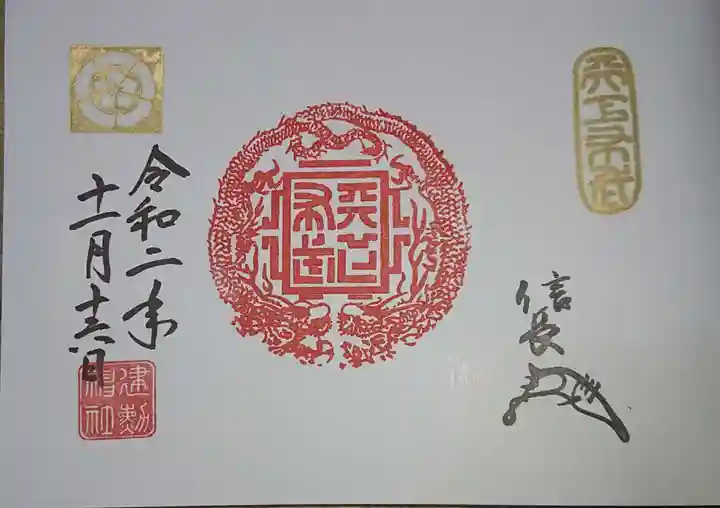 天下布武
信長
天下
布武
令和二年
十一月十六日
建勲
神社